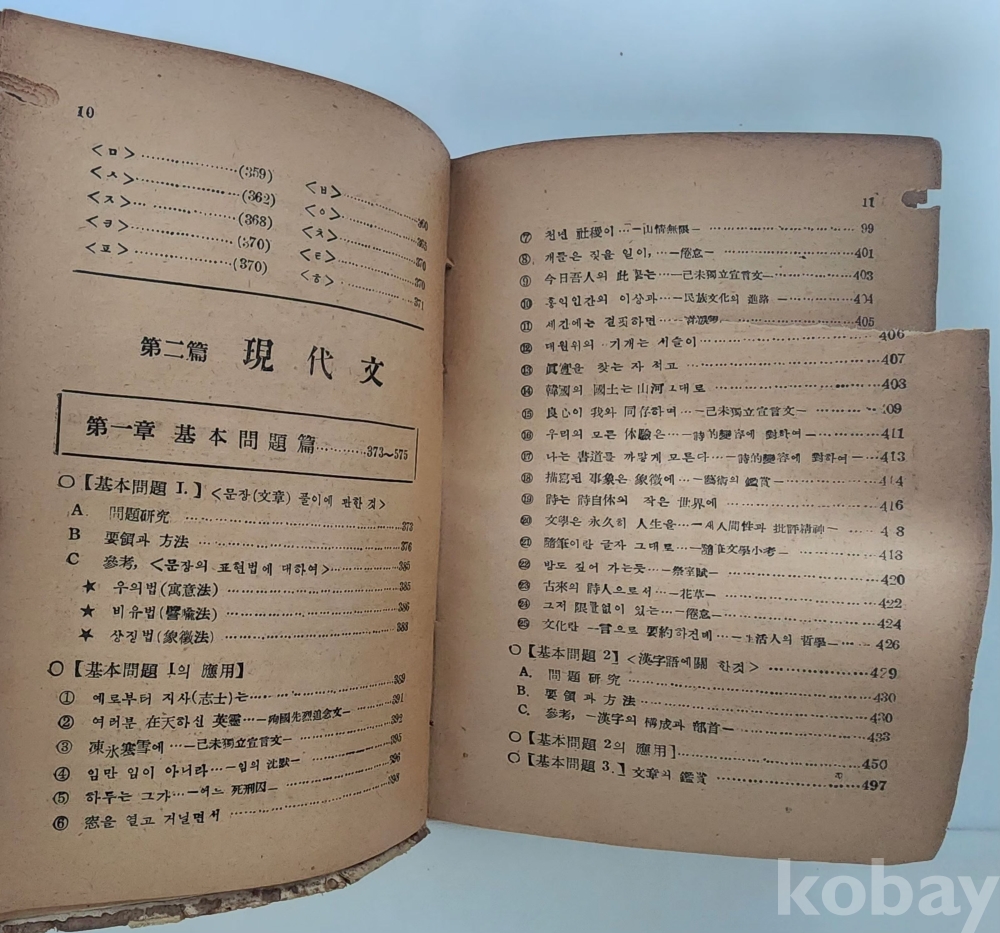 10
<ㅁ>……………(359)
<ㅅ>……………(362)
<ㅈ>……………(368)
<ㅋ>……………(370)
<ㅍ>……………(370)
<ㅂ>……………360
<ㅇ>……………365
<ㅊ>……………370
<ㅌ>……………370
<ㅎ>……………371
第二篇 現代文
第一章 基本問題篇………373~575
○【基本問題 Ⅰ.】<문장(文章) 풀이에 관한것>
A 問題研究……………373
B 要領과 方法……………376
C 參考, <문장의 표현법에 대하여>……………385
★ 우의법(寓意法)……………385
★ 비유법(譬喩法)……………386
★ 상징법(象徵法)……………388
○【基本問題 1의 應用】……………389
① 예로부터 지사(志士)는……………391
② 여러분 在天하신 英靈…—殉國先烈追念文—……………392
③ 凍氷寒雪에…—己未獨立宣言文—……………395
④ 임만 임이 아니라…—임의 沈默—……………396
⑤ 하루는 그가…—어느 死刑囚—……………398
⑥ 窓을 열고 거닐면서……………
11
⑦ 천년 社稷이…—山情無限—……………99
⑧ 개들은 짖을 일이,…—倦怠—……………401
⑨ 今日吾人의 此 는…—己未獨立宣言文—……………403
⑩ 홍익인간의 이상과…—民族文化의 進路—……………404
⑪ 세간에는 걸핏하면………………405
⑫ 대원위의 기개는 서슬이……………406
⑬ 眞實을 찾는 자 적고……………407
⑭ 韓國의 國土는 山河 그대로……………408
⑮ 良心이 我와 同存하며…—己未獨立宣言文—……………409
⑯ 우리의 모든 体驗은…—詩的變容에 對하여—……………411
⑰ 나는 書道를 까맣게 모른다…—詩的變容에 對하여—……………413
⑱ 描寫된 事象은 象徵에…—藝術의 鑑賞—……………414
⑲ 詩는 詩自体의 작은 世界에……………416
⑳ 文學은 永久히 人生을…—새人間性과 批評精神—……………4 8
㉑ 隨筆이란 글자 그대로…—隨筆文學小考—……………418
㉒ 밤도 짚어 가는듯…—祭室賦—……………420
㉓ 古來의 詩人으로서…—花草—……………422
㉔ 그저 限없이 있는…—倦怠—……………424
㉕ 文化란 一言으로 要約하건데…—生活人의 哲學—……………426
○【基本問題 2】<漢字語에關 한것>……………429
A. 問題研究……………430
B. 要領과 方法……………430
C. 參考, —漢字의 構成과 部首—……………433
○【基本問題 2의 應用】……………450
○【基本問題 3.】文章의 鑑賞……………497
kobay